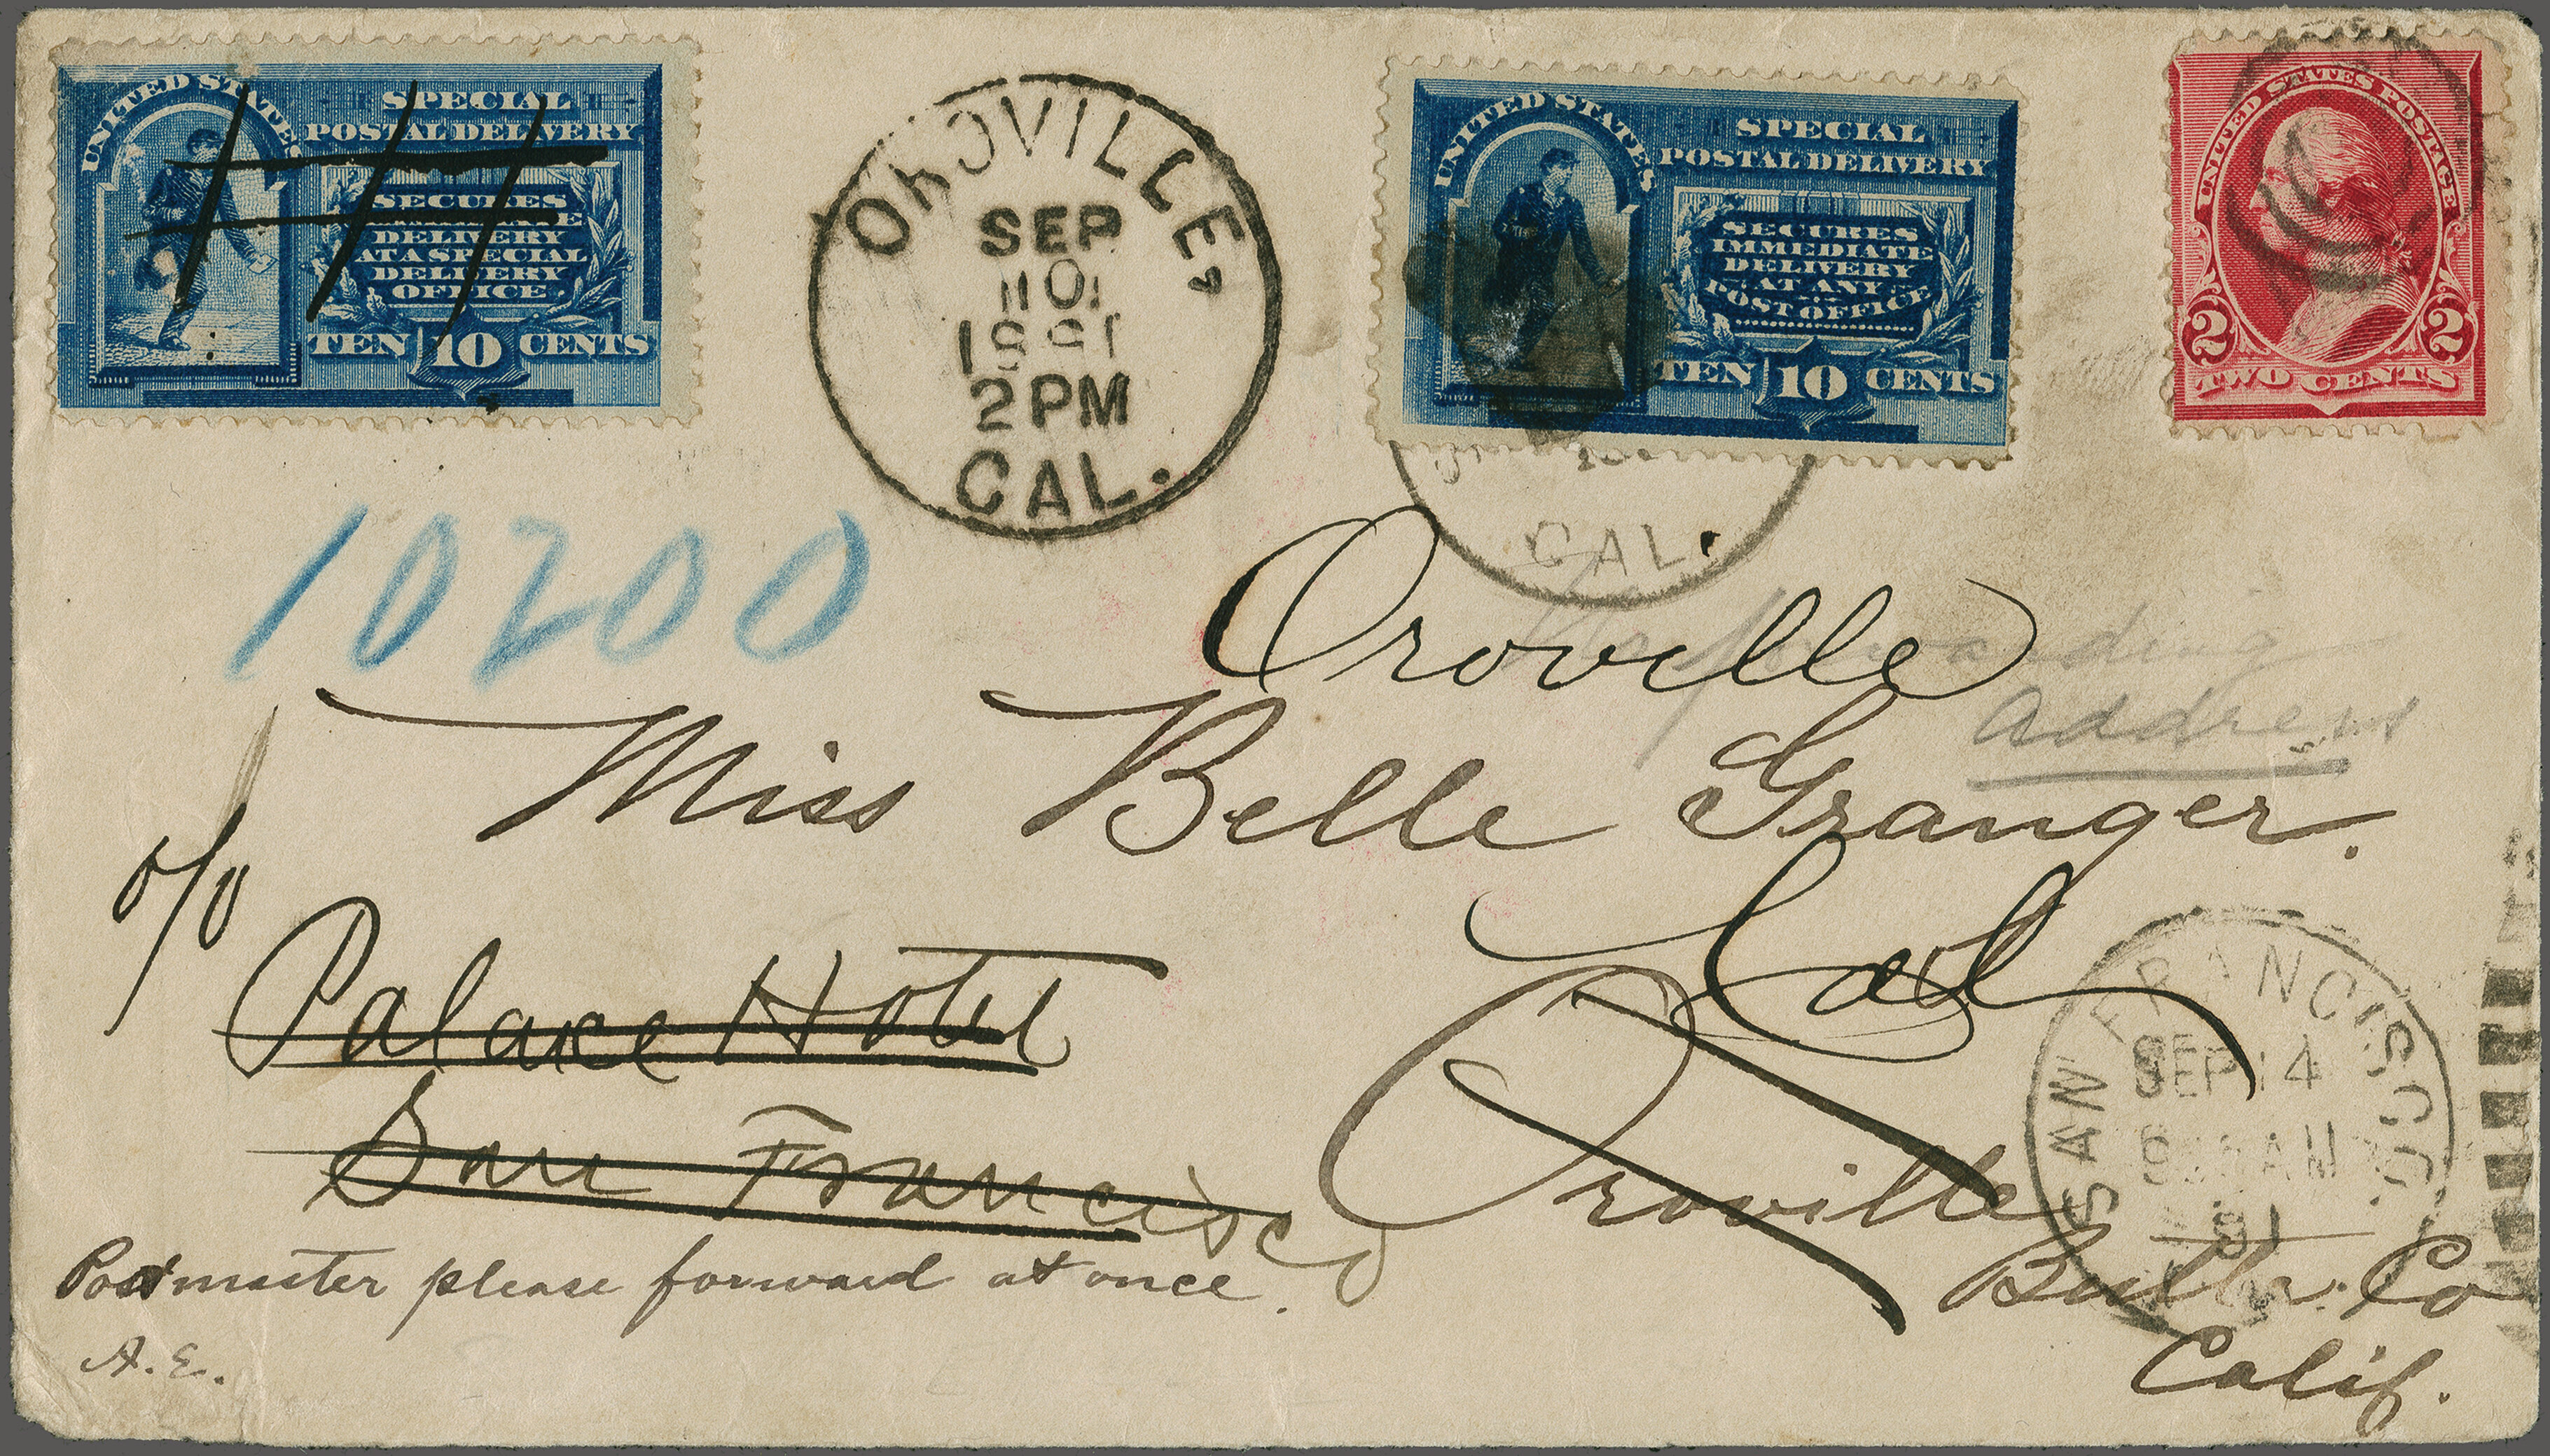 UNITED STATES
SPECIAL
POSTAL DELIVERY
SECURES
DELIVERY
AT A SPECIAL
DELIVERY
OFFICE.
TEN 10 CENTS
OROVILLE,
SEP
10
1891
2 PM
CAL.
UNITED STATES
SPECIAL
POSTAL DELIVERY
SECURES
IMMEDIATE
DELIVERY
AT ANY
POST OFFICE
TEN 10 CENTS
CAL.
UNITED STATES POSTAGE
2 2
TWO CENTS
10200
Oroville
address
Miss Belle Granger.
c/o
Cal
Palace Hotel
San Francisco
Oroville
Butte Co
Calif.
SAN FRANCISCO
SEP 14
AM
91
Postmaster please forward at once.
A. E.